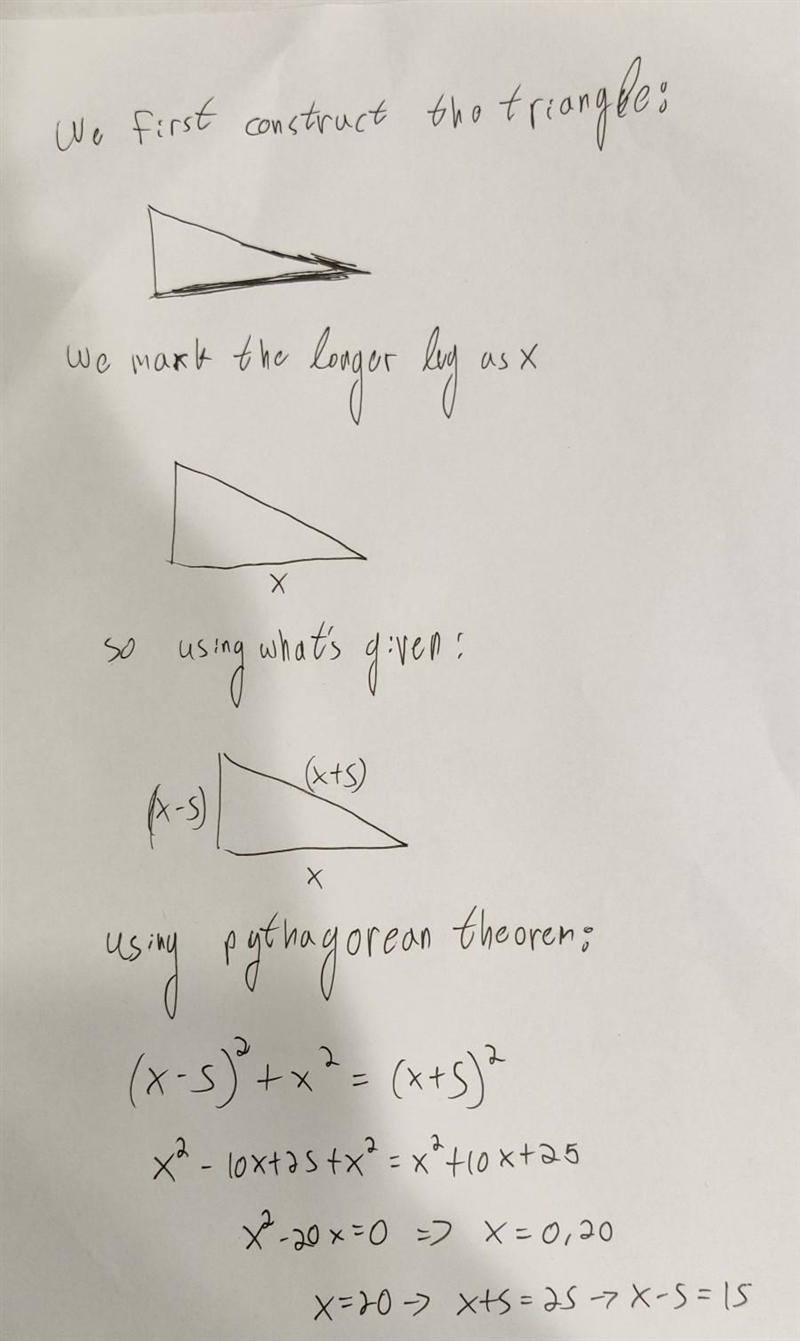 We first construct the triangle:
We mark the longer leg as x
x
so using what's given:
(x-5)
(x+5)
x
using pythagorean theorem:
(x-5)²+x²=(x+5)²
x²-10x+25+x²=x²+10x+25
x²-20x=0 => x=0,20
x=20→ x+5=25→x-5=15